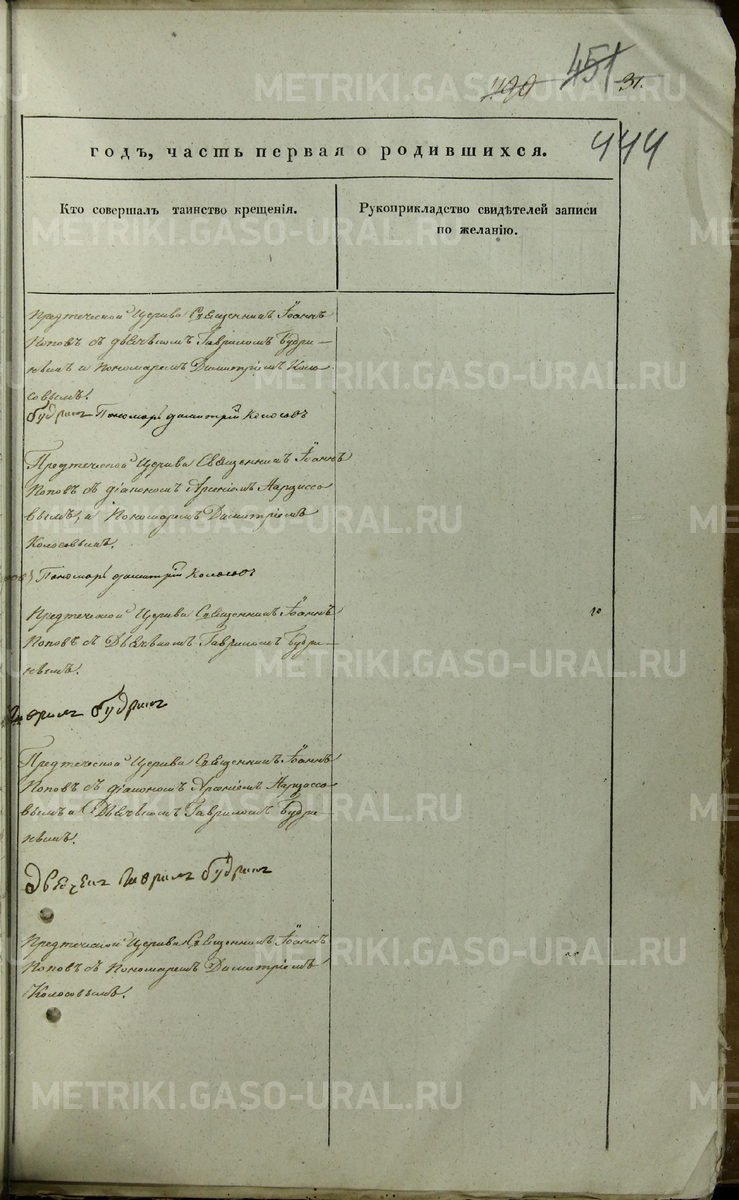 490 451 31.
444
годъ, часть первая о родившихся.
Кто совершалъ таинство крещенія.
Рукоприкладство свидѣтелей записи
по желанію.
Предтеческой Церкви Священникъ Іоаннъ
Поповъ съ дьячькомъ Гавриломъ Будри-
нымъ и Пономаремъ Димитріемъ Коло-
совымъ.
Будринъ Пономарь Димитрій Колосовъ
Предтеческой Церкви Священникъ Іоаннъ
Поповъ съ діакономъ Арсеніемъ Нарциссо
вымъ, и Пономаремъ Димитріемъ
Колосовымъ.
Пономарь Димитрій Колосовъ
Предтеческой Церкви Священникъ Іоаннъ
Поповъ съ Дьячькомъ Гавриломъ Будри-
нымъ.
Гаврилъ Будринъ
Предтеческой Церкви Священникъ Іоаннъ
Поповъ съ діакономъ Арсеніемъ Нарциссо
вымъ и Дьячькомъ Гавриломъ Будри-
нымъ.
Дьячекъ Гаврилъ Будринъ
Предтеческой Церкви Священникъ Іоаннъ
Поповъ съ Пономаремъ Димитріемъ
Колосовымъ.
METRIKI.GASO-URAL.RU